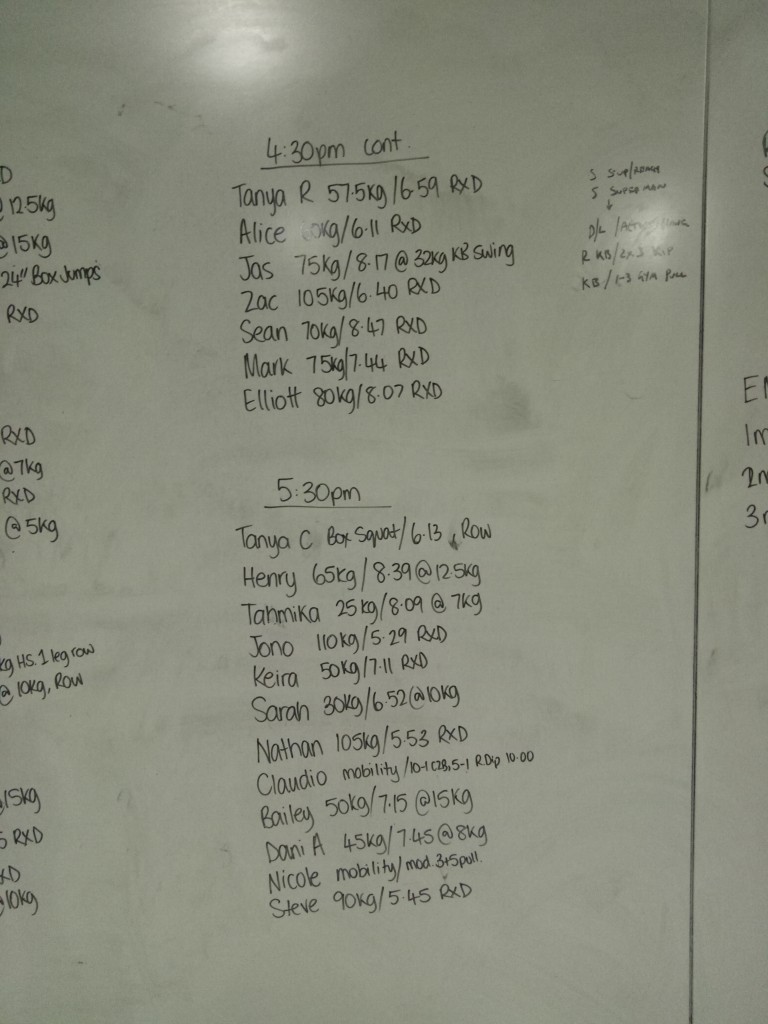 D
@ 12.5kg
@ 15kg
24" Box Jumps
RXD
RXD
@ 7kg
RXD
@ 5kg
kg HS. 1 leg row
@ 10kg, Row
@15kg
5 RXD
XD
@10kg
4:30pm cont.
Tanya R 57.5kg/6.59 RXD
Alice 0kg/6.11 RXD
Jas 75kg/8.17 @ 32kg KB Swing
Zac 105kg/6.40 RXD
Sean 70kg/8.47 RXD
Mark 75kg/7.44 RXD
Elliott 80kg/8.07 RXD
5:30pm
Tanya C Box Squat/6.13 , Row
Henry 65kg/8.39 @ 12.5kg
Tahmika 25kg/8.09 @ 7kg
Jono 110kg/5.29 RXD
Keira 50kg/7.11 RXD
Sarah 30kg/6.52 @ 10kg
Nathan 105kg/5.53 RXD
Claudio mobility/10-1 C2B, 5-1 R.Dip 10.00
Bailey 50kg/7.15 @15kg
Dani A 45kg/7.45 @ 8kg
Nicole mobility/mod. 3+5 pull.
Steve 90kg/5.45 RXD
S
S SUPERMAN
↓
D/L
R KB/
KB/1-3 GYM
1m
2n
3r